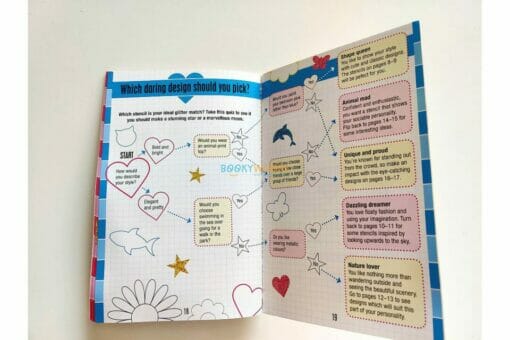 Which daring design should you pick?
Which stencil is your ideal glitter match? Take this quiz to see if
you should make a stunning star or a marvellous moon.
START
How would
you describe
your style?
Bold and
bright
Elegant
and pretty
Would you wear
an animal-print
top?
Yes
No
Would you
choose
swimming in
the sea over
going for a
walk in the
park?
Yes
No
18
BOOKY
Yes
No
Yes
No
Do you like
wearing metallic
colours?
Yes
No
19
Shape queen
You like to show your style
with cute and classic designs.
The stencils on pages 8–9
will be perfect for you.
Animal mad
Confident and enthusiastic,
you want a stencil that shows
your sociable personality.
Flip back to pages 14–15 for
some interesting ideas.
Unique and proud
You're known for standing out
from the crowd, so make an
impact with the eye-catching
designs on pages 16–17.
Dazzling dreamer
You love floaty fashion and
using your imagination. Turn
back to pages 10–11 for
some stencils inspired by
looking upwards to the sky.
Nature lover
You like nothing more than
wandering outside and
seeing the beautiful scenery.
Go to pages 12–13 to see
designs which will suit this
part of your personality.